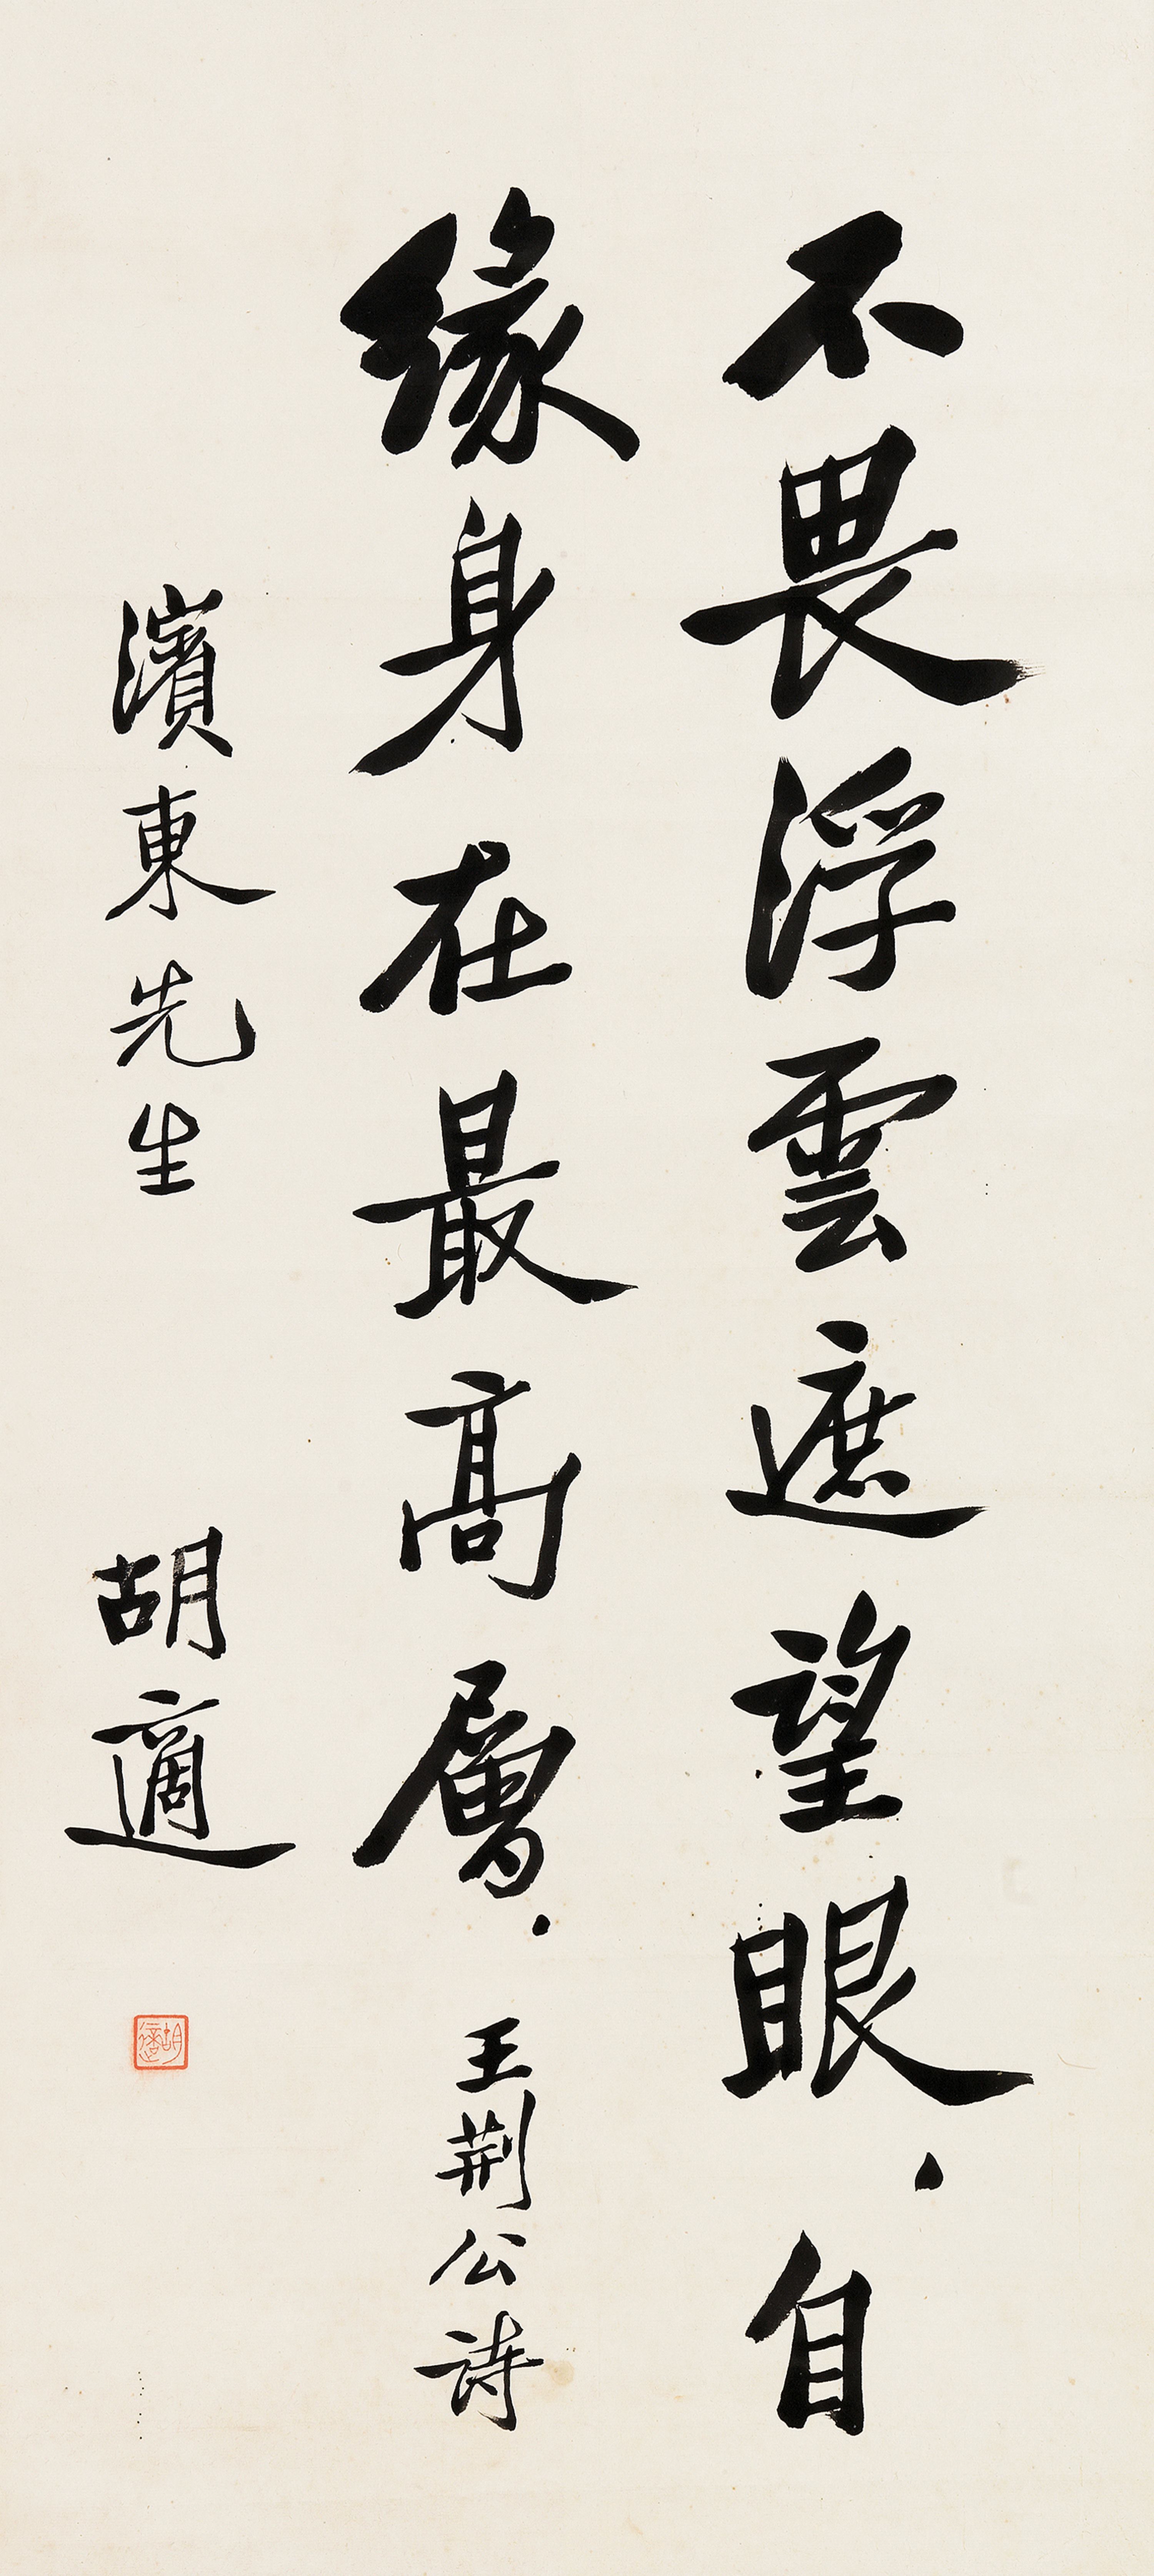 不畏浮雲遮望眼．自
緣身在最高層．王荆公詩
濱東先生　胡適
胡適